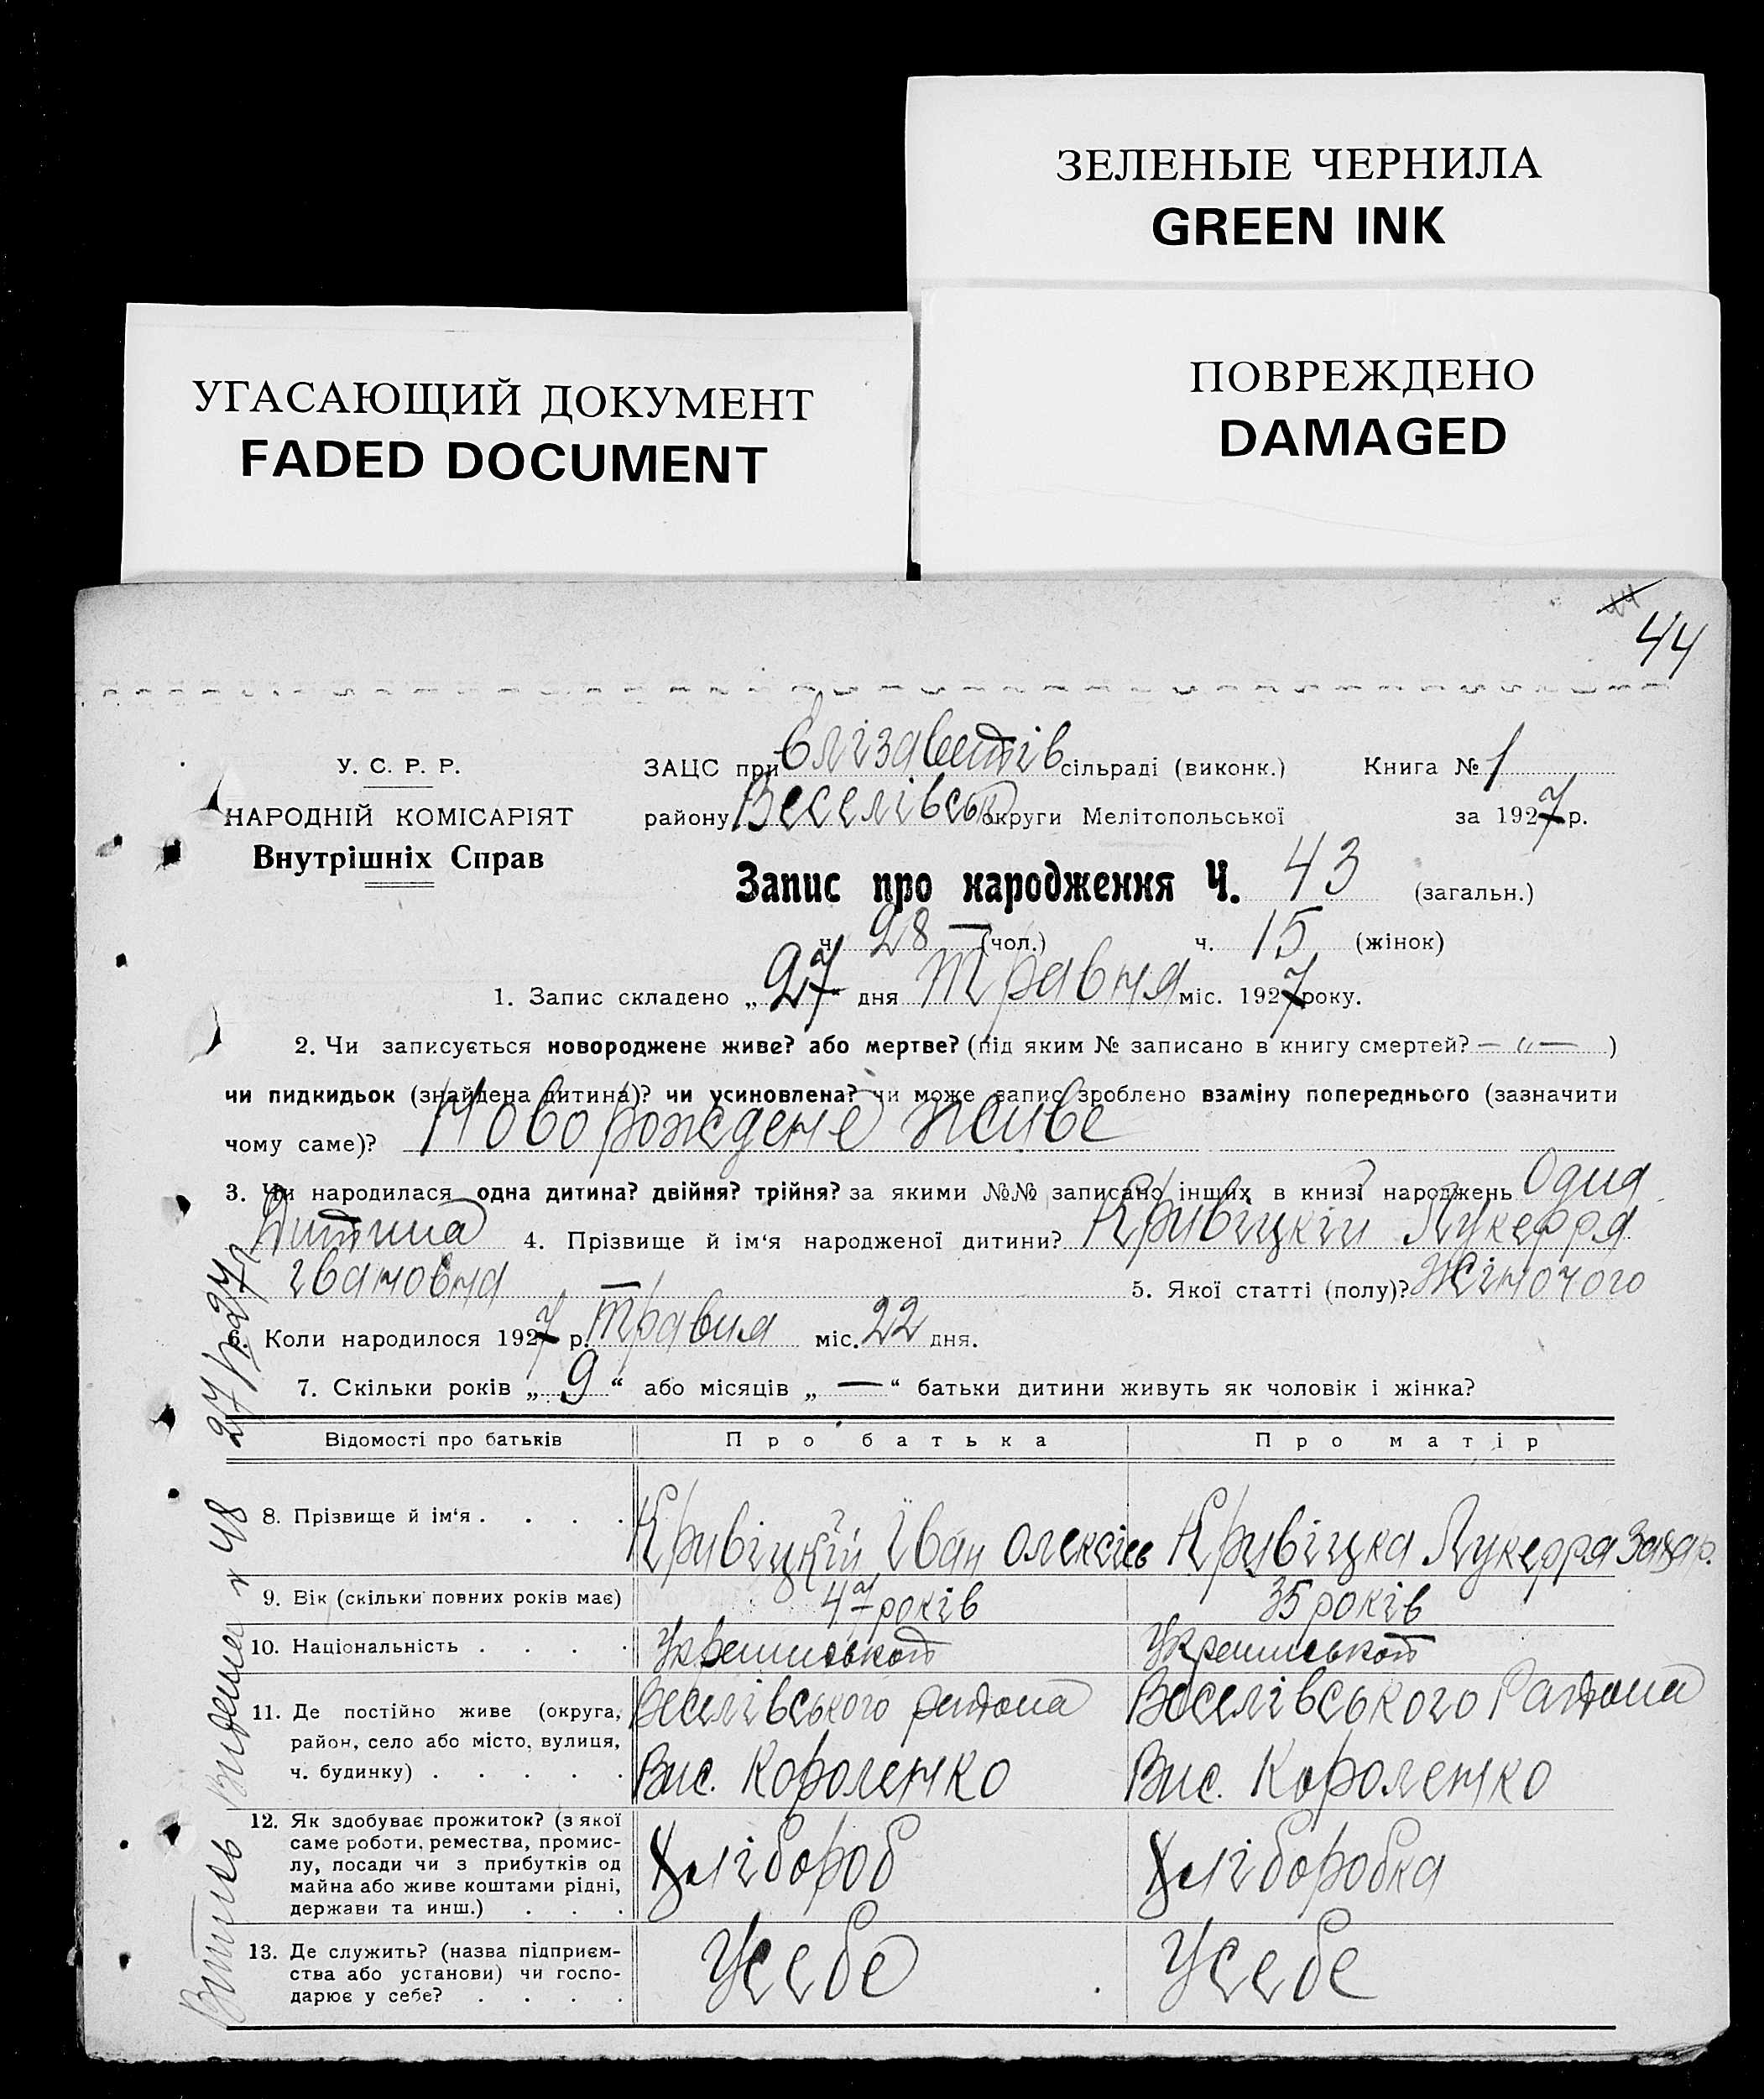 ЗЕЛЕНЫЕ ЧЕРНИЛА
GREEN INK
УГАСАЮЩИЙ ДОКУМЕНТ
FADED DOCUMENT
ПОВРЕЖДЕНО
DAMAGED
44
У. С. Р. Р.
НАРОДНІЙ КОМІСАРІЯТ
Внутрішніх Справ
ЗАЦС при Єлізаветів сільраді (виконк.) Книга № 1
району Веселівськ округи Мелітопольської за 1927 р.
Запис про народження Ч. 43 (загальн.)
ч. 28 — (чол.) ч. 15 (жінок)
1. Запис складено „ 27 " дня Травня міс. 1927 року.
2. Чи записується новороджене живе? або мертве? (під яким № записано в книгу смертей? — " — )
чи пидкидьок (знайдена дитина)? чи усиновлена? чи може запис зроблено взаміну попереднього (зазначити
чому саме)? Новорождене живе
3. Чи народилася одна дитина? двійня? трійня? за якими №№ записано інших в книзі народжень Одна
Дитина 4. Прізвище й ім'я народженої дитини? Кривіцкій Лукерря
івановна 5. Якої статті (полу)? Жіночого
6. Коли народилося 1927 р. Травня міс. 22 дня.
7. Скільки років „ 9 " або місяців „ — " батьки дитини живуть як чоловік і жінка?
Відомості про батьків Про батька Про матір
8. Прізвище й ім'я . . . . Кривіцкій Іван Олексієв Кривіцка Лукерра Захар.
9. Вік (скільки повних років має) 47 років 35 років
10. Національність . . . .
11. Де постійно живе (округа, Веселівського района Веселівського Района
район, село або місто, вулиця,
ч. будинку) . . . . . Вис. Короленко Вис. Короленко
12. Як здобуває прожиток? (з якої
саме роботи, ремества, промис-
лу, посади чи з прибутків од Хлібороб Хліборобка
майна або живе коштами рідні,
держави та инш.) . . .
13. Де служить? (назва підприєм-
ства або установи) чи госпо- Усебе Усебе
дарює у себе? . . . .